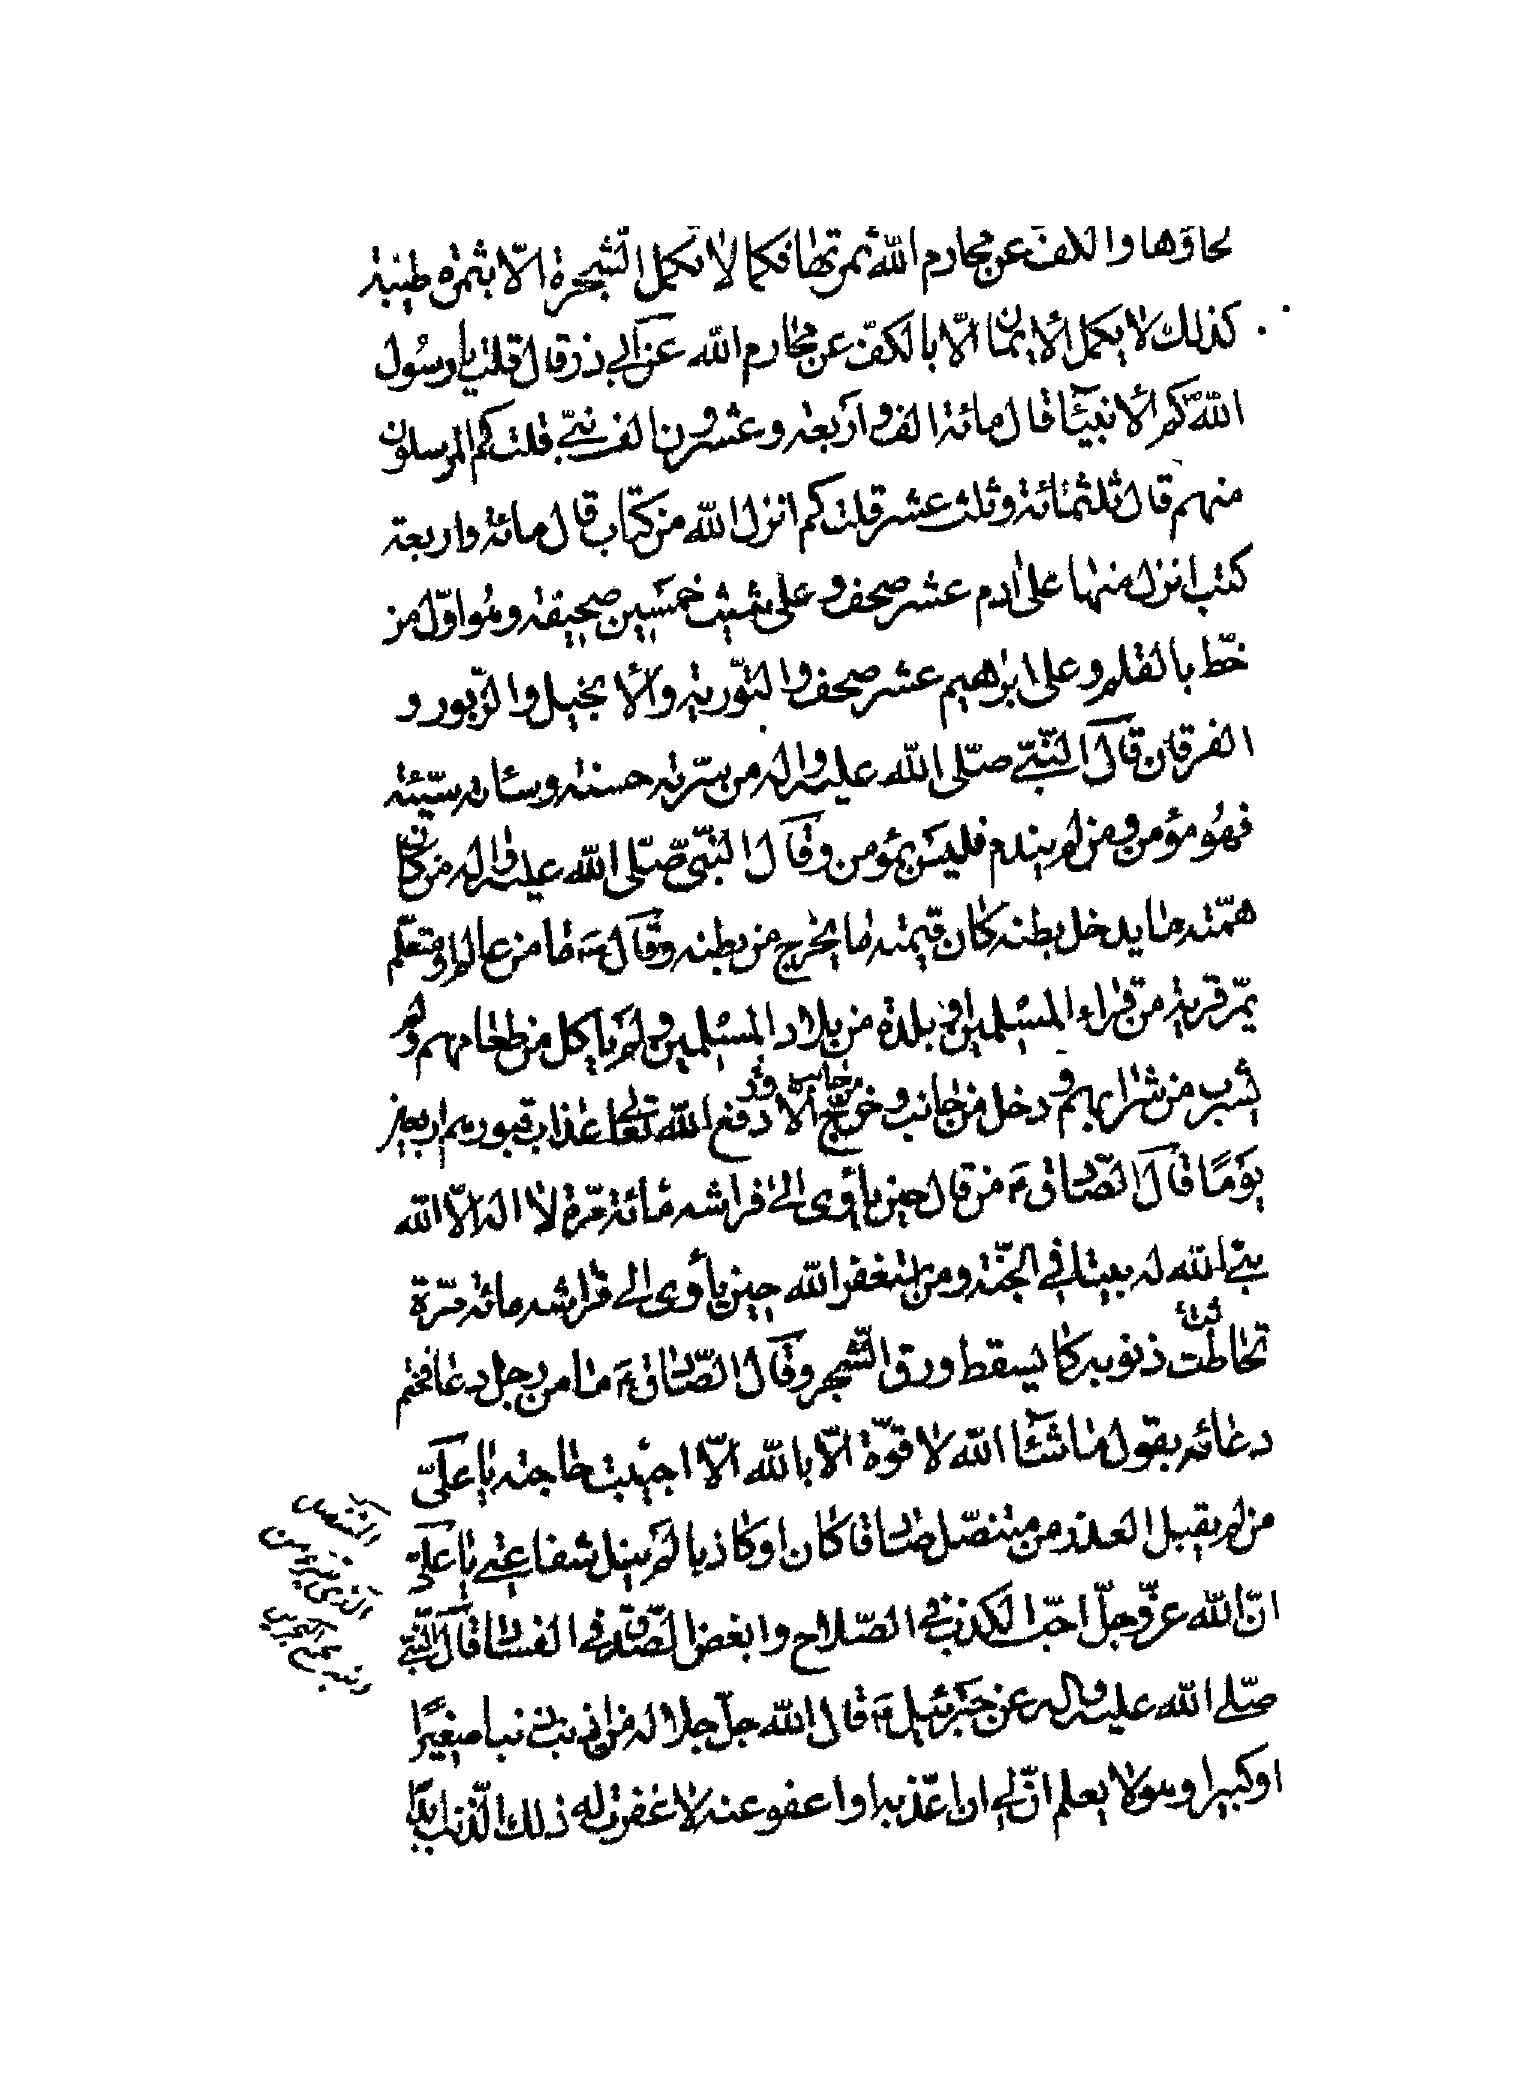 لحاؤها والكفّ عن محارم الله ثمرتها فكما لا تكمل الشّجرة الّا بثمرة طيّبة
كذلك لا يكمل الايمان الّا بالكفّ عن محارم الله عن ابي ذر قال قلت يا رسول
اللّه كم الانبيآء قال مائة الف واربعة وعشرون الف نبيّ قلت كم المرسلون
منهم قال ثلثمائة وثلث عشر قلت كم انزل الله من كتاب قال مائة واربعة
كتب انزل منها على ادم عشر صحف و على شيث خمسين صحيفة وهو اوّل من
خطّ بالقلم وعلى ابراهيم عشر صحف والتّورية والانجيل والزّبور و
الفرقان قال النّبيّ صلّى الله عليه واله من سرّته حسنته وسائته سيّئته
فهو مؤمن ومن لم يندم فليس بمؤمن وقال النّبيّ صلّى الله عليه واله من كان
همّته ما يدخل بطنه كان قيمته ما يخرج من بطنه وقال ع ما من عالم او متعلّم
يمرّ قرية من قراء المسلمين او بلدة من بلاد المسلمين ولم يأكل من طعامهم ولم
يشرب من شرابهم و دخل من جانب وخرج من جانب الّا وقد دفع الله تعالى عذاب قبورهم اربعين
يومًا قال الصّادق ع من قال حين يأوى الى فراشه مائة مرّة لا اله الّا الله
بنى الله له بيتا في الجنّة ومن استغفر الله حين يأوى الى فراشه مائة مرّة
تحاطت ذنوبه كما يسقط ورق الشّجر وقال الصّادق ع ما من رجل دعا فختم
دعائه بقول ما شآء الله لا قوّة الّا بالله الّا اجيبت حاجته يا عليّ
من لم يقبل العذر من متنصّل صادقا كان او كاذبا لم ينل شفاعتي يا عليّ
انّ الله عزّ وجلّ احبّ الكذب في الصّلاح وابغض الصّدق في الفساد قال النّبيّ
صلّى الله عليه واله عن جبرئيل ع قال الله جلّ جلاله من اذنب ذنبا صغيرًا
او كبيرا وهو لا يعلم انّ لي ان اعذّبه او اعفو عنه لا غفرت له ذلك الذّنب ابدًا